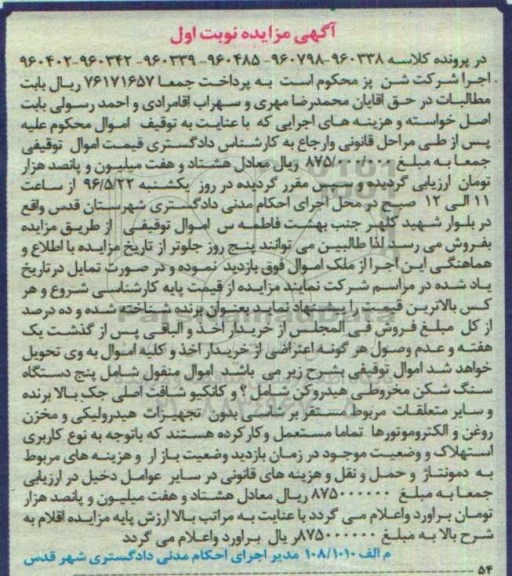 آگهی مزایده نوبت اول
در پرونده کلاسه ۹۶۰۳۳۸-۹۶۰۷۹۸-۹۶۰۴۸۵-۹۶۰۳۳۹-۹۶۰۳۴۲-۹۶۰۴۰۲
اجرا شرکت شن پز محکوم است به پرداخت جمعا ۷۶۱۷۱۶۵۷ ریال بابت
مطالبات در حق اقایان محمدرضا مهری و سهراب اقامرادی و احمد رسولی بابت
اصل خواسته و هزینه های اجرایی که با عنایت به توقیف اموال محکوم علیه
پس از طی مراحل قانونی وارجاع به کارشناس دادگستری قیمت اموال توقیفی
جمعا به مبلغ ۸۷۵/۰۰۰/۰۰۰ ریال معادل هشتاد و هفت میلیون و پانصد هزار
تومان ارزیابی گردیده سپس مقرر گردیده در روز یکشنبه ۹۶/۵/۲۲ از ساعت
۱۱ الی ۱۲ صبح در محل اجرای احکام مدنی دادگستری شهرستان قدس واقع
در بلوار شهید کلهر جنب بهشت فاطمه س اموال توقیفی از طریق مزایده
بفروش می رسد لذا طالبین می توانند پنج روز جلوتر از تاریخ مزایده با اطلاع و
هماهنگی این اجرا از ملک اموال فوق بازدید نموده و در صورت تمایل در تاریخ
یاد شده در مراسم شرکت نمایند مزایده از قیمت پایه کارشناسی شروع و هر
کس بالاترین قیمت را پیشنهاد نماید بعنوان برنده شناخته شده و ده درصد
از کل مبلغ فروش فی المجلس از خریدار اخذ و الباقی پس از گذشت یک
هفته و عدم وصول هر گونه اعتراضی از خریدار اخذ و کلیه اموال به وی تحویل
خواهد شد اموال توقیفی بشرح زیر می باشد اموال منقول شامل پنج دستگاه
سنگ شکن مخروطی هیدروکن شامل ؟ و کانکیو شافت اصلی جک بالا برنده
و سایر متعلقات مربوط مستقر بر شاسی بدون تجهیزات هیدرولیکی و مخزن
روغن و الکتروموتورها تماما مستعمل و کارکرده هستند که باتوجه به نوع کاربری
استهلاک و وضعیت موجود در زمان بازدید وضعیت بازار و هزینه های مربوط
به دمونتاژ و حمل و نقل و هزینه های قانونی در سایر عوامل دخیل در ارزیابی
جمعا به مبلغ ۸۷۵۰۰۰۰۰۰ ریال معادل هشتاد و هفت میلیون و پانصد هزار
تومان براورد واعلام می گردد با عنایت به مراتب بالا ارزش پایه مزایده اقلام به
شرح بالا به مبلغ ۸۷۵۰۰۰۰۰۰ ریال براورد واعلام می گردد
م الف ۱۰۸/۱۰۱۰ مدیر اجرای احکام مدنی دادگستری شهر قدس
۵۴